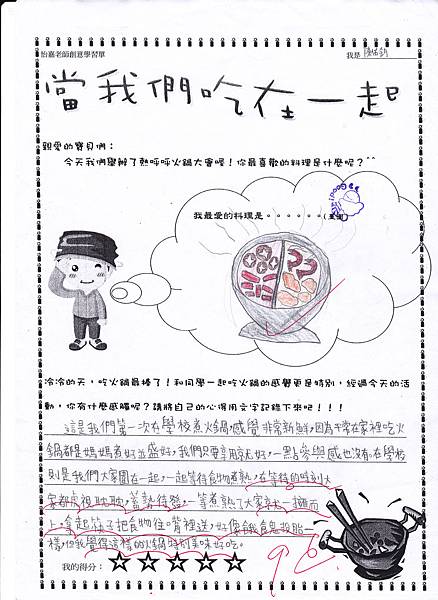 怡嘉老師創意學習單
我是
當我們吃在一起
親愛的寶貝們：
今天我們舉辦了熱呼呼火鍋大會喔！你最喜歡的料理是什麼呢？^^
Good
我最愛的料理是。。。。。。(畫畫)
冷冷的天，吃火鍋最棒了！和同學一起吃火鍋的感覺更是特別，經過今天的活
動，你有什麼感觸呢？請將自己的心得用文字記錄下來吧！！！
這是我們第一次在學校煮火鍋，感覺非常新鮮，因為平常在家裡吃火
鍋都是媽媽煮好並盛好，我們只要享用就好，一點參與感也沒有，在學校
則是我們大家圍在一起，一起等待食物煮熟，在等待的時刻大
家都虎視眈眈，蓄勢待發，一等煮熟了大家就一擁而
上，拿起筷子把食物往嘴裡送，好像餓鬼投胎一
樣，但我覺得這樣的火鍋特別美味好吃。
我的得分：☆☆☆☆☆